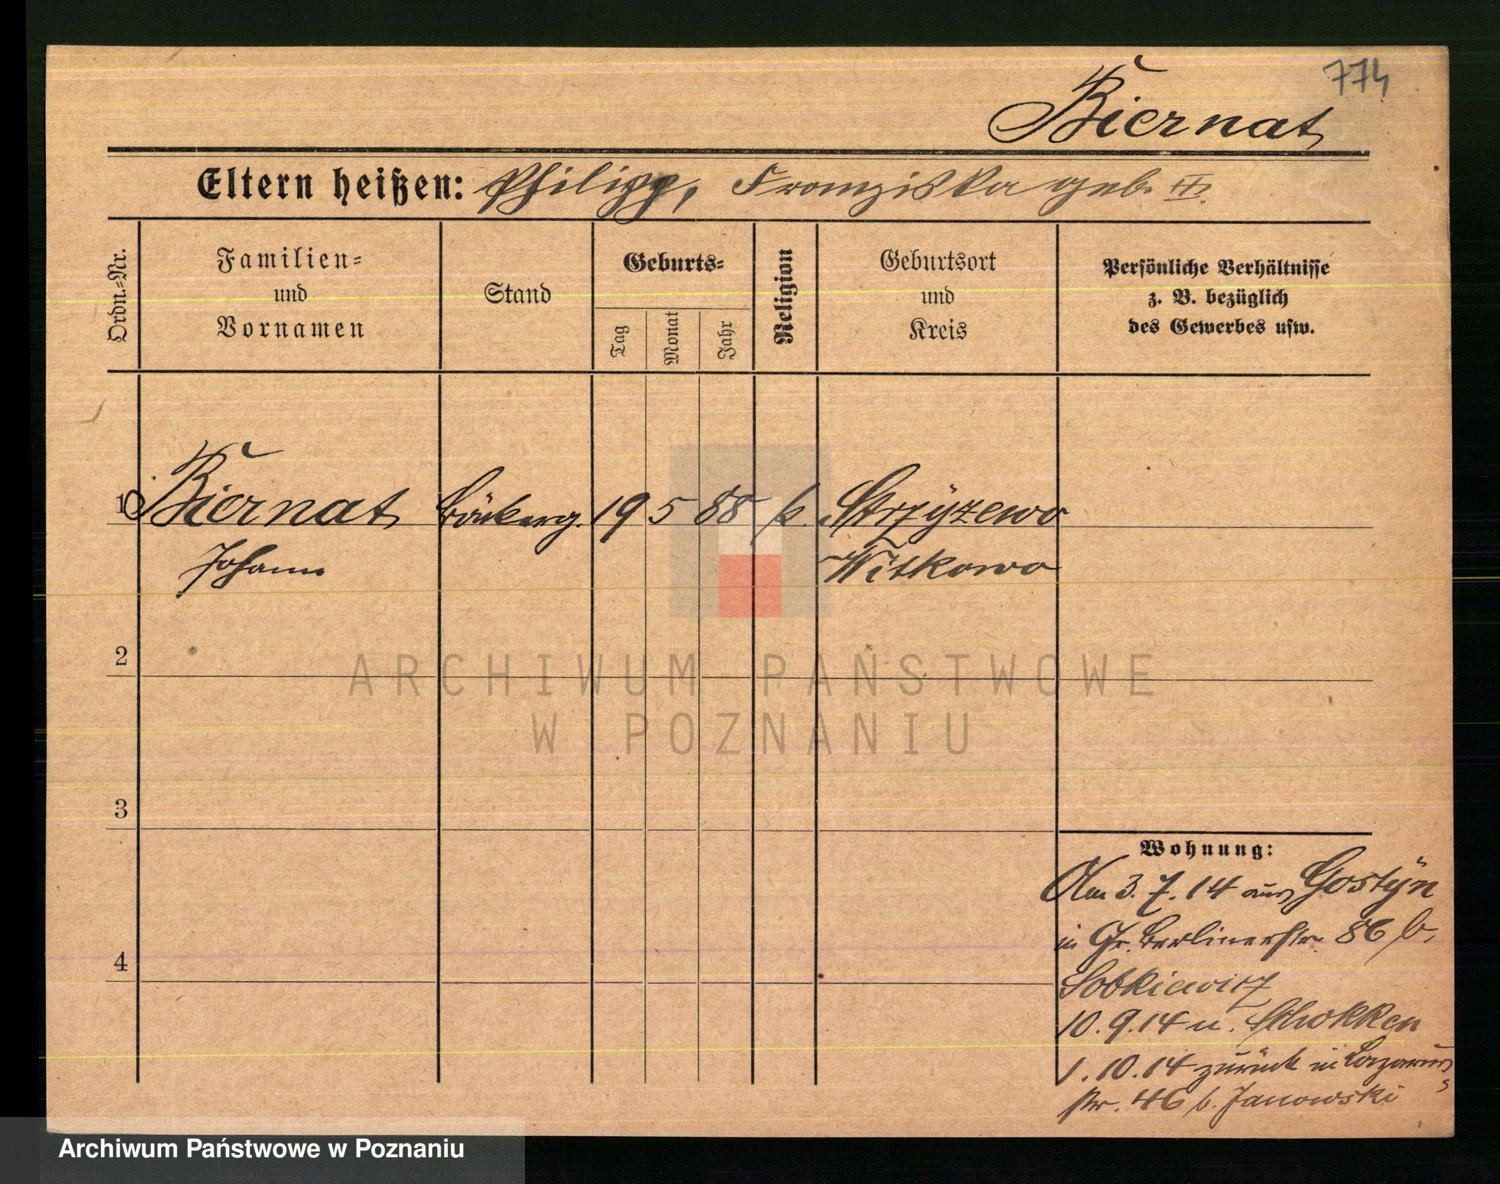 774
Biernat
Eltern heißen: Philipp, Franziska geb.
Ordn.-Nr.
Familien-
und
Vornamen
Stand
Geburts-
Tag
Monat
Jahr
Religion
Geburtsort
und
Kreis
Persönliche Verhältnisse
z. B. bezüglich
des Gewerbes usw.
1 Biernat Bäckerg. 19 5 88 k. Strzyżewo
Johann Witkowo
2
ARCHIWUM PAŃSTWOWE
W POZNANIU
3
Wohnung:
Am 3.7.14 aus Gostyn
in Gr. Berlinerstr. 86 b.
4
Sobkiewicz
10.9.14 n. Schokken
1.10.14 zurück in Lazarus
str. 46 b. Janowski
Archiwum Państwowe w Poznaniu